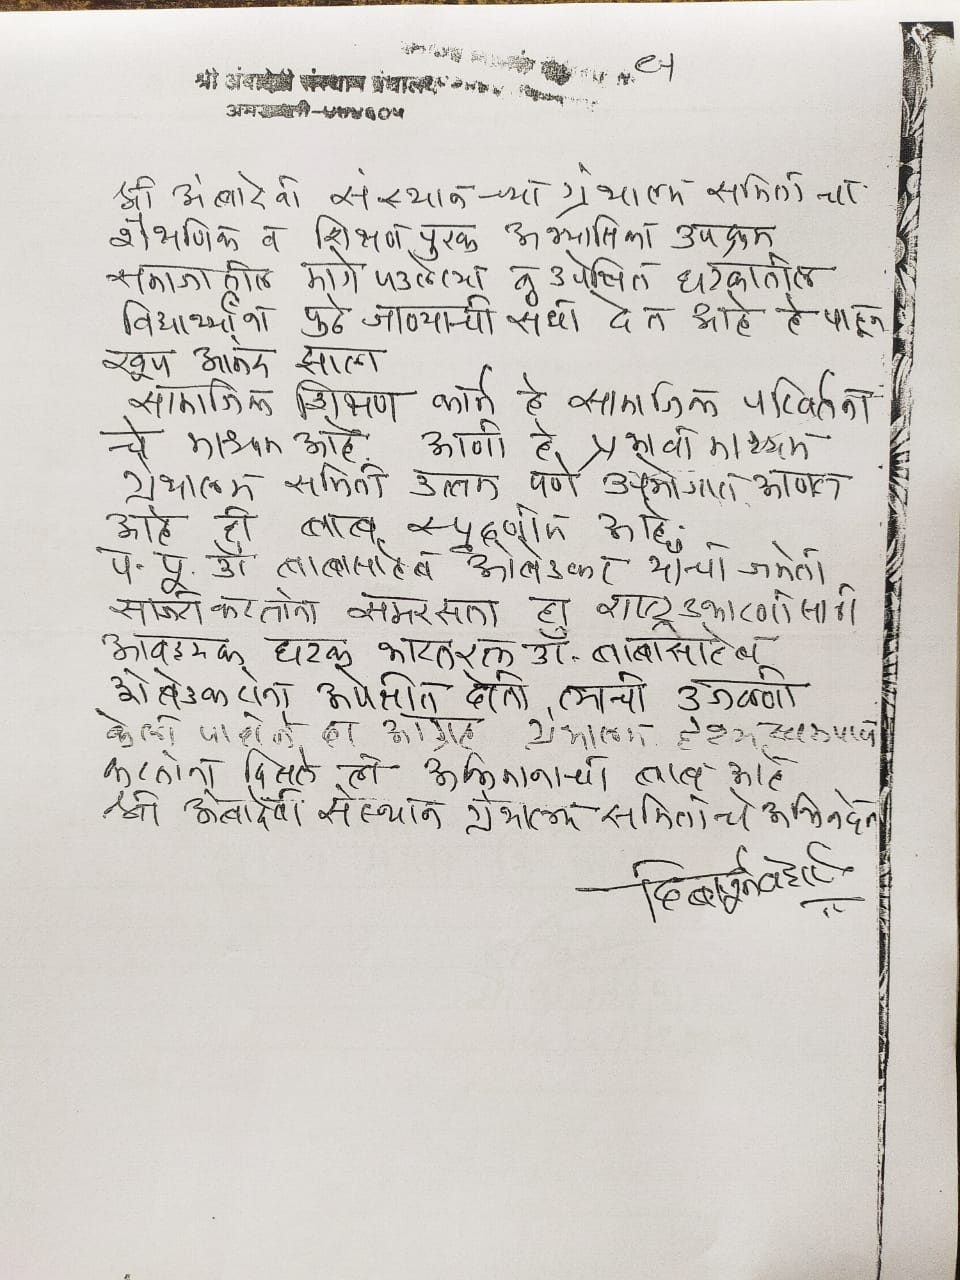 श्री अंबादेवी संस्थान ग्रंथालय
अमरावती-४४४६०५
श्री अंबादेवी संस्थान च्या ग्रंथालय समितीचा
शैक्षणिक व शिक्षण पुरक अभ्यासिका उपक्रम
समाजातील मागे पडलेल्या व उपेक्षित घटकातील
विद्यार्थ्यांना पुढे जाण्याची संधी देत आहे हे पाहून
खूप आनंद झाला
सामाजिक शिक्षण कार्य हे सामाजिक परिवर्तना
चे माध्यम आहे. आणी हे प्रभावी माध्यम
ग्रंथालय समिती उत्तम पणे उपभोगात आणत
आहे ही बाब स्पृहणीय आहे.
प. पू. डॉ बाबासाहेब आंबेडकर यांची जयंती
साजरी करतांना समरसता हा राष्ट्र उभारणीसाठी
आवश्यक घटक भारतरत्न डॉ. बाबासाहेब
आंबेडकरांना अपेक्षीत होता त्याची उजळणी
केली पाहीजे हा आग्रह ग्रंथालय
करतांना दिसले ती अभिमानाची बाब आहे
श्री अंबादेवी संस्थान ग्रंथालय समितीचे अभिनंदन